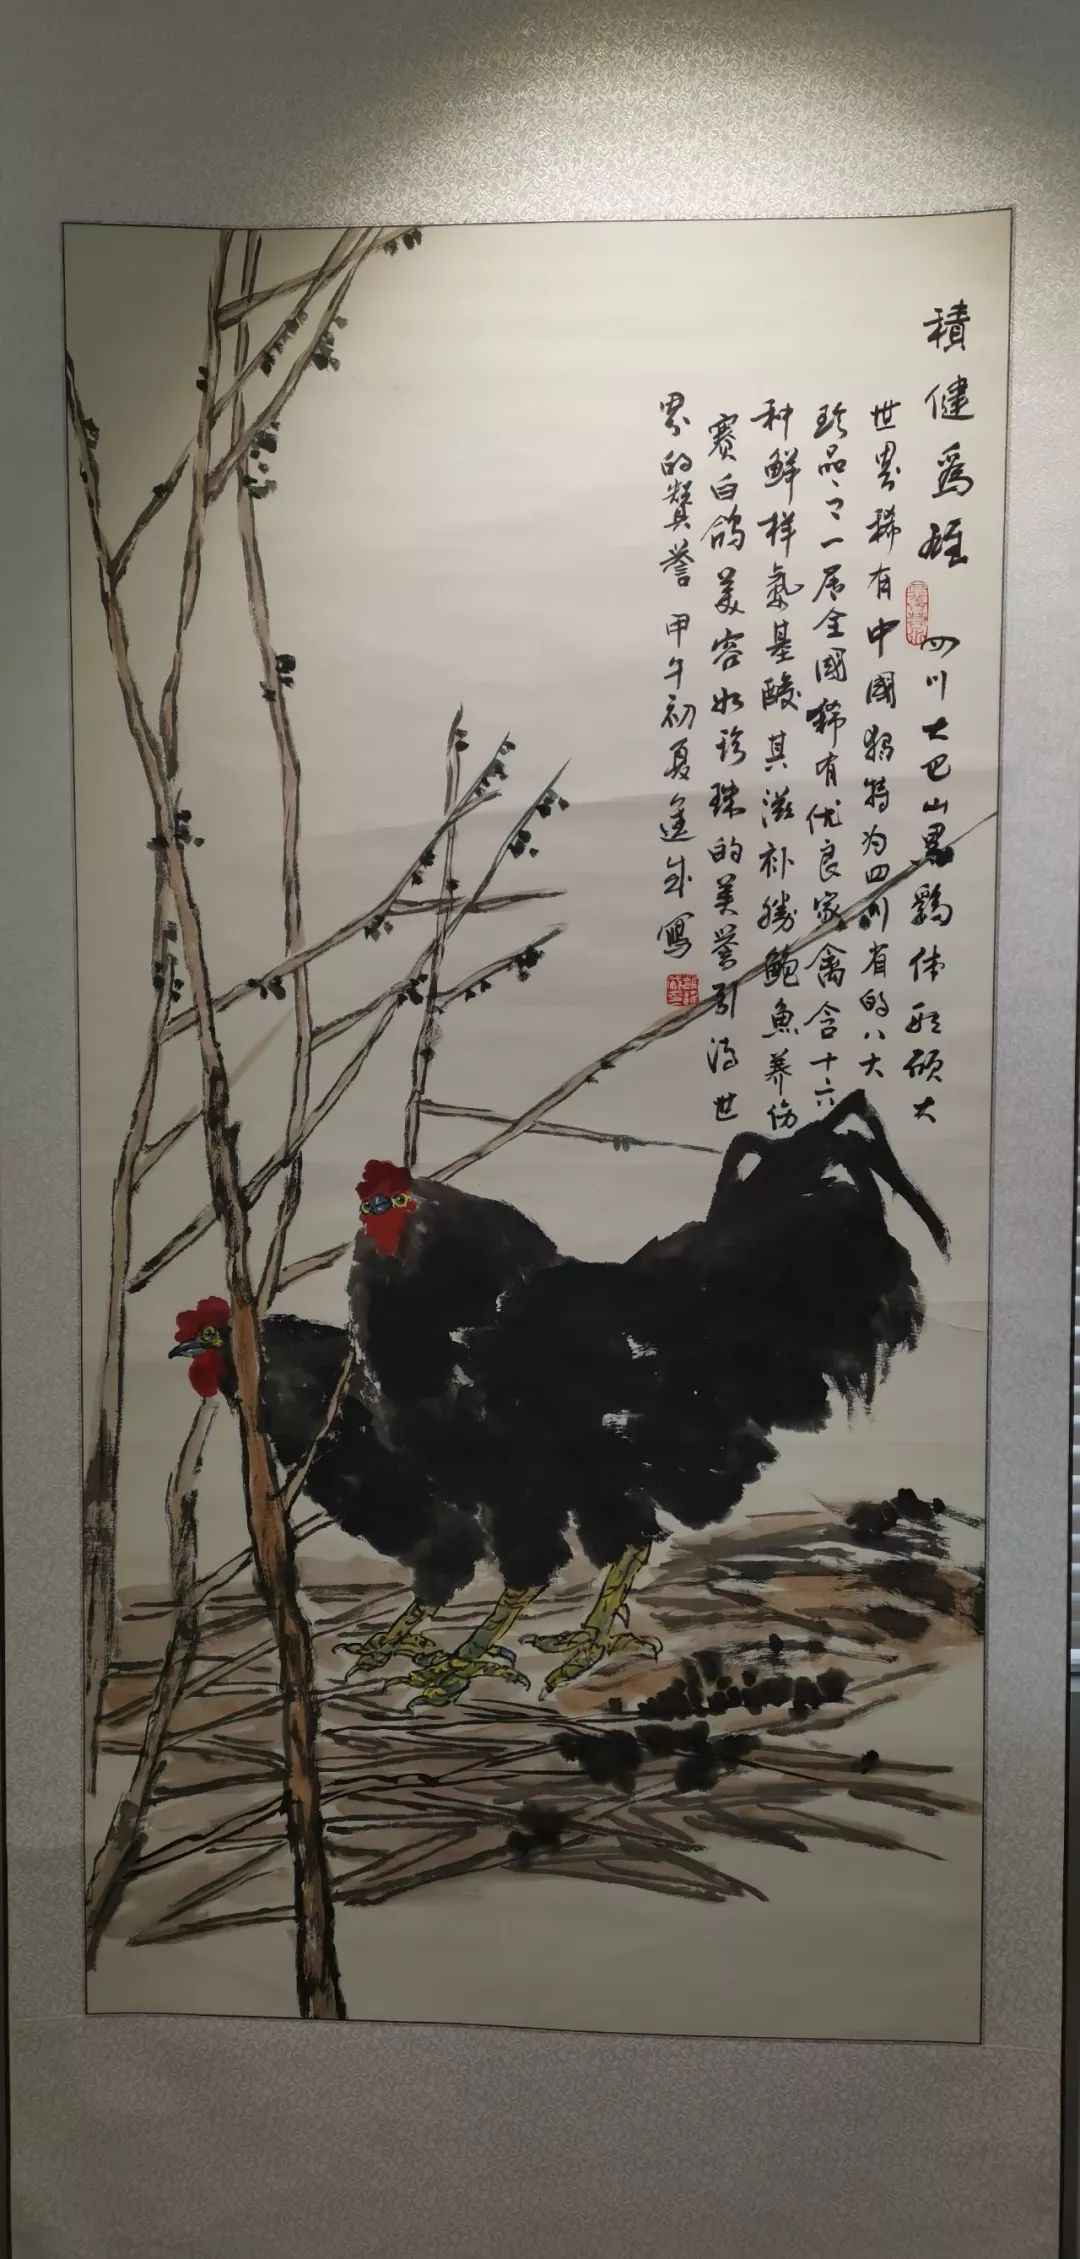 積健為雄 四川大巴山黑鷄体形硕大
世界稀有中國独特为四川省的八大
珍品之一居全國稀有优良家禽含十六
种鮮样氨基酸其滋补勝鲍魚养伤
赛白鸽美容如珍珠的美誉引得世
界的賛誉 甲午初夏進成寫